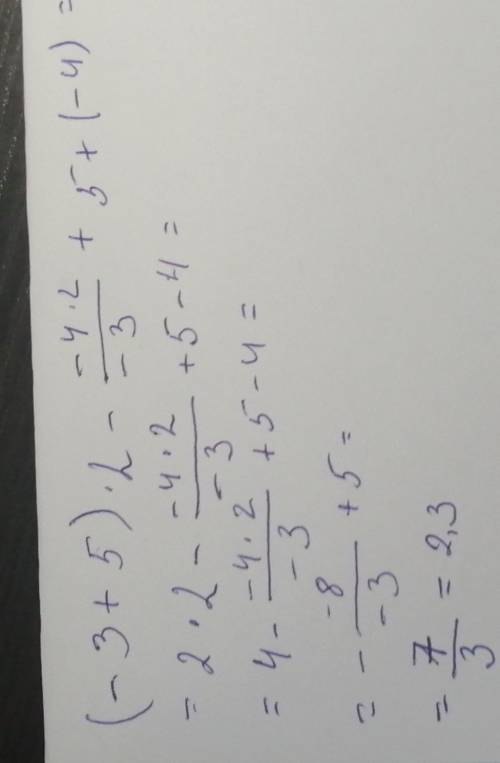 (-3+5)·2 - \frac{-4·2}{-3} + 5 + (-4) =
= 2·2 - \frac{-4·2}{-3} + 5 - 4 =
= 4 - \frac{-4·2}{-3} + 5 - 4 =
= - \frac{-8}{-3} + 5 =
= \frac{7}{3} = 2,3